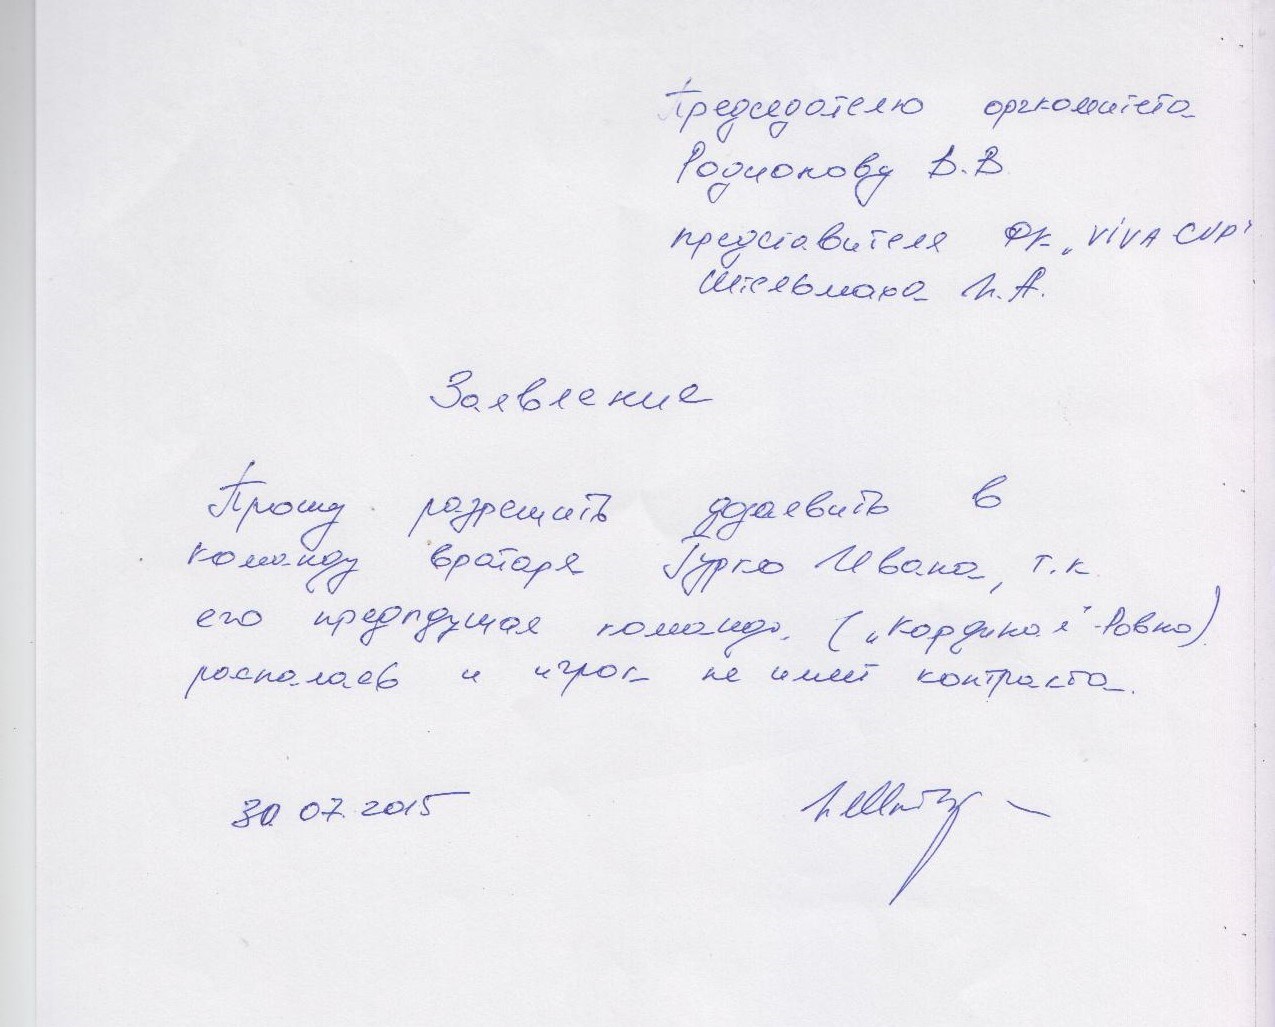 Председателю оргкомитета
Родионову В.В
представителя ФК „VIVA CUP"
Штельмаха И.А.
Заявление
Прошу разрешить дозаявить в
команду вратаря Гурко Ивана, т.к.
его предыдущая команда („Кардинал"-Ровно)
роспалась и игрок не имеет контракта.
30.07.2015